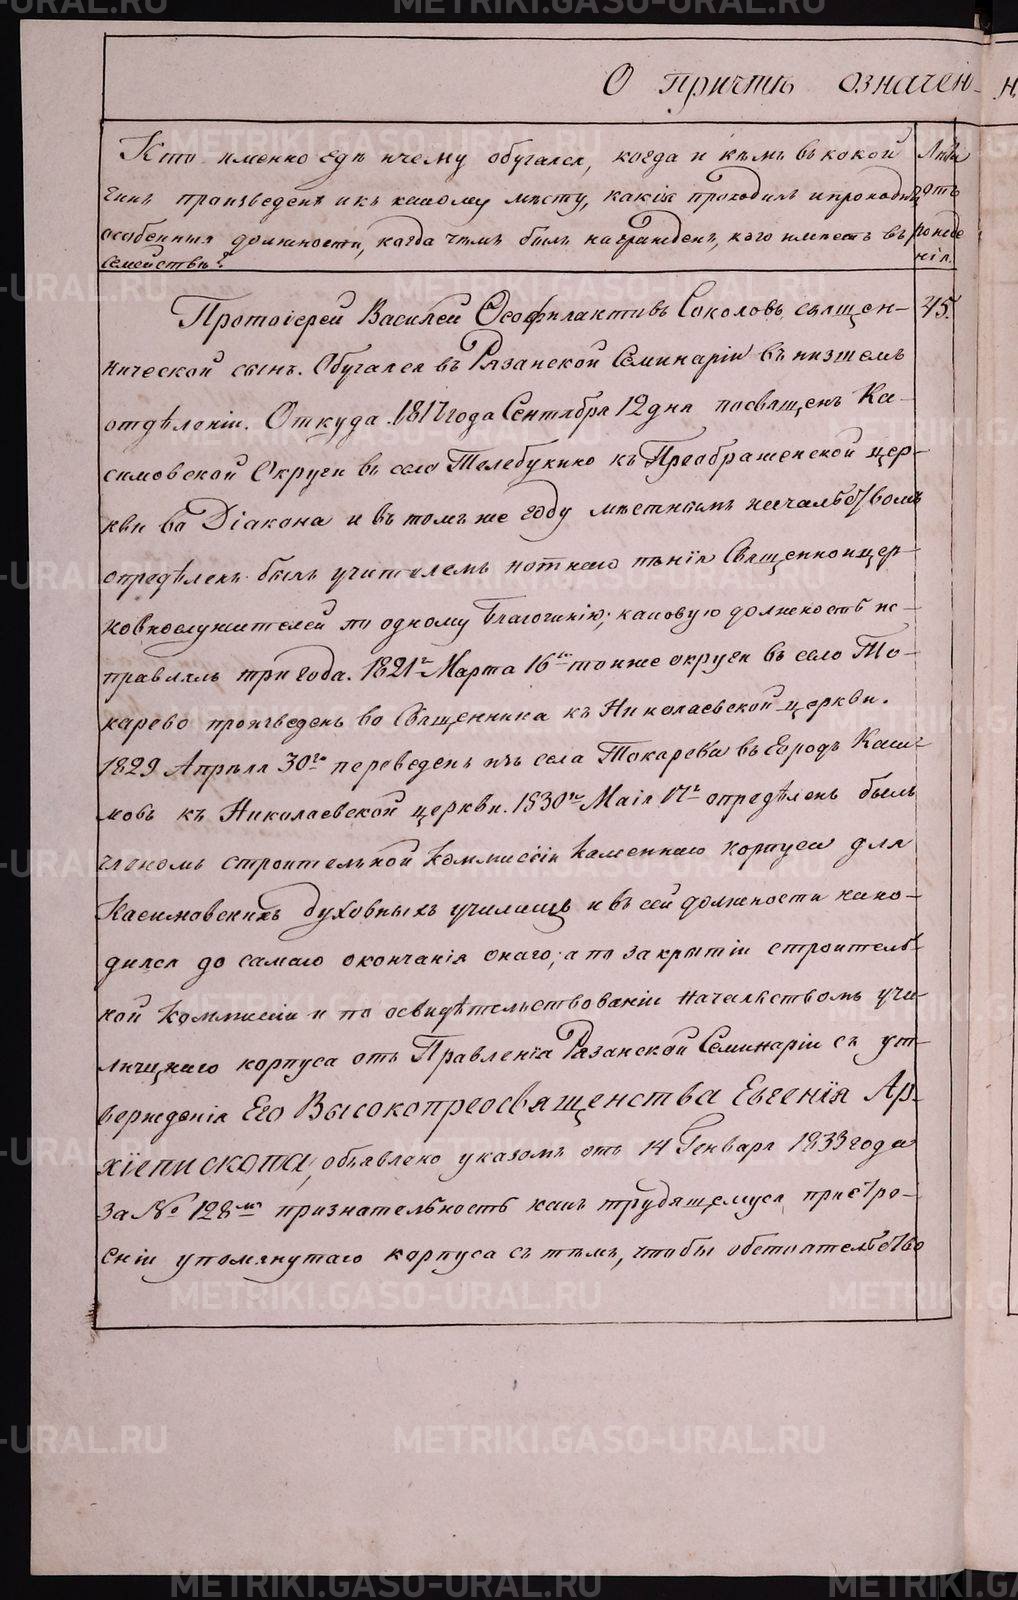 О причтѣ означен-
Кто именно гдѣ и чему обучался, когда и кѣмъ въ какой
чинъ произведенъ и къ какому мѣсту, какія проходилъ и проходитъ
особенныя должности, когда чемъ былъ награжденъ, кого имѣетъ въ
семействѣ?
Лѣта
отъ
рожде
нія.
Протоіерей Василей Ѳеофилактивъ Соколовъ, священ-
нической сынъ. Обучался въ Рязанской Семинаріи въ низшемъ
отдѣленіи. Откуда 1817 года Сентября 12 дня посвященъ Ка-
симовской Округи въ село Телебукино къ Преображенской цер-
кви во Діакона и въ томъ же году мѣстнымъ начальствомъ
опредѣленъ былъ учителемъ нотнаго пѣнія Священноцер-
ковнослужителей по одному благочинію; каковую должность ис-
правлялъ три года. 1821го Марта 16го тояже округи въ село То-
карево произведенъ во Священника къ Николаевской церкви.
1829 Апрѣля 30го переведенъ изъ села Токарева въ городъ Каси-
мовъ къ Николаевской церкви. 1830го Маія 17го опредѣленъ былъ
членомъ строительной Коммиссіи каменнаго корпуса для
Касимовскихъ духовныхъ училищъ и въ сей должности нахо-
дился до самаго окончанія онаго; а по закрытіи строитель-
ной Коммиссіи и по освидѣтельствованіи начальствомъ учи-
лищнаго корпуса отъ Правленія Рязанской Семинаріи съ ут-
вержденія Его Высокопреосвященства Евгенія Ар-
хіепископа, объявлено указомъ отъ 14 Генваря 1833 года
за № 128мъ признательность какъ трудящемуся при стро-
еніи упомянутаго корпуса съ тѣмъ, чтобы обстоятельство
45.